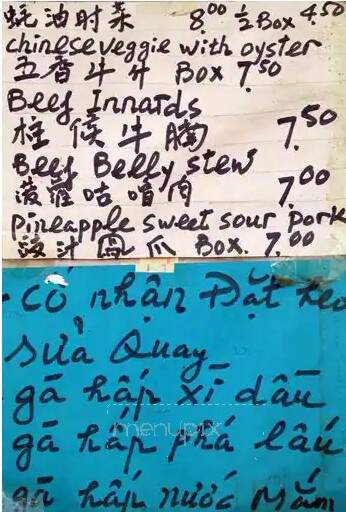 蚝油时菜 8.00 ½ Box 4.50
chinese veggie with oyster
五香牛什 Box 7.50
Beef Innards
柱候牛腩 7.50
Beef Belly stew
菠蘿咕嚕肉 7.00
pineapple sweet sour pork
豉汁凤爪 Box. 7.00
- có nhận Đặt heo
sửa Quay
gà hấp xì dầu
menupix
gà hấp phá lấu
gà hấp nước Mắm